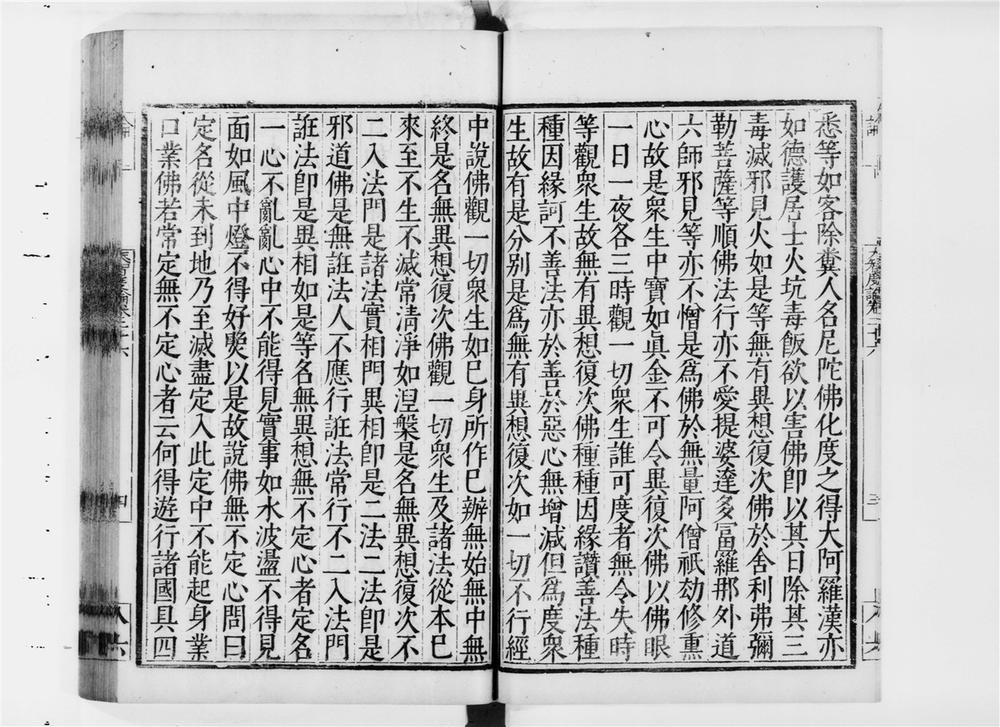 悉等如客除糞人名尼陀佛化度之得大阿羅漢亦
如德護居士火坑毒飯欲以害佛即以其日除其三
毒滅邪見火如是等無有異想復次佛於舍利弗彌
勒菩薩等順佛法行亦不愛提婆達多富羅那外道
六師邪見等亦不憎是為佛於無量阿僧祇劫修熏
心故是衆生中寶如真金不可令異復次佛以佛眼
一日一夜各三時觀一切衆生誰可度者無令失時
等觀衆生故無有異想復次佛種種因緣讚善法種
種因緣訶不善法亦於善於惡心無增減但為度衆
生故有是分别是為無有異想復次如一切不行經
中說佛觀一切衆生如巳身所作巳辦無始無中無
終是名無異想復次佛觀一切衆生及諸法從本巳
來至不生不滅常清淨如涅槃是名無異想復次不
二入法門是諸法實相門異相即是二法二法即是
邪道佛是無誑法人不應行誑法常行不二入法門
誑法即是異相如是等名無異想無不定心者定名
一心不亂亂心中不能得見實事如水波盪不得見
面如風中燈不得好㷼以是故說佛無不定心問曰
定名從未到地乃至滅盡定入此定中不能起身業
口業佛若常定無不定心者云何得遊行諸國具四